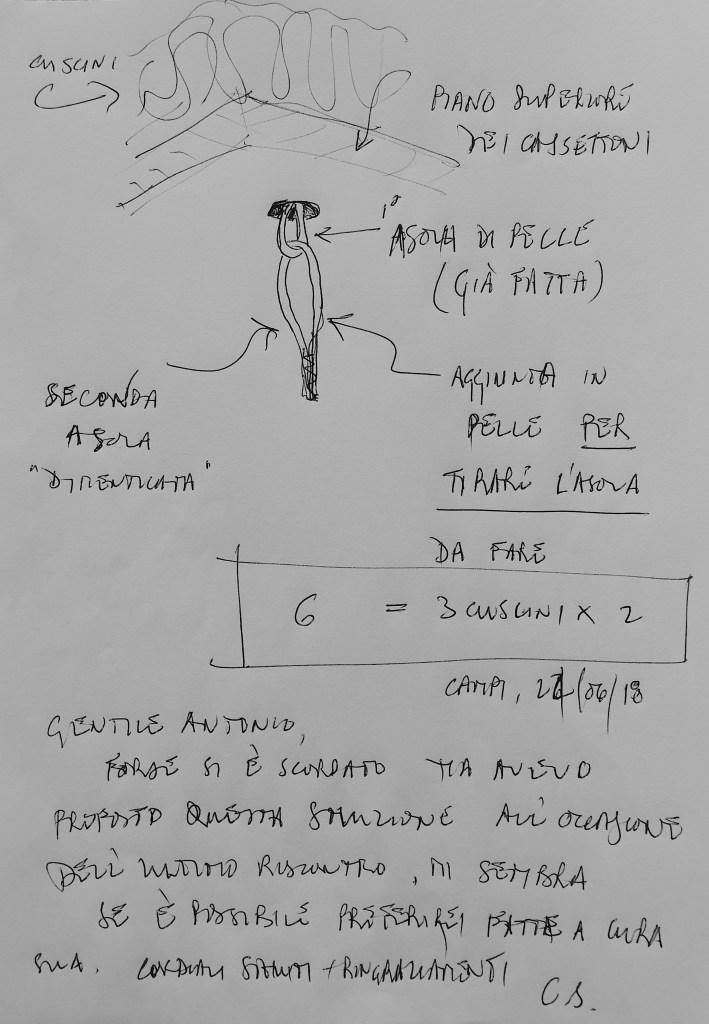 CUSCINI
PIANO SUPERIORE
DEI CASSETTONI
1ª
ASOLA DI PELLE
(GIÀ FATTA)
SECONDA
ASOLA
"DIMENTICATA"
AGGIUNTA IN
PELLE PER
TIRARE L'ASOLA
DA FARE
6 = 3 CUSCINI X 2
CAMPI, /06/18
GENTILE ANTONIO,
FORSE SI È SCORDATO MA AVEVO
PROPOSTO QUESTA SOLUZIONE ALL'OCCASIONE
DELL'ULTIMO RISCONTRO, MI SEMBRA
SE È POSSIBILE PREFERIREI A CURA
SUA. CORDIALI SALUTI + RINGRAZIAMENTI
C.S.